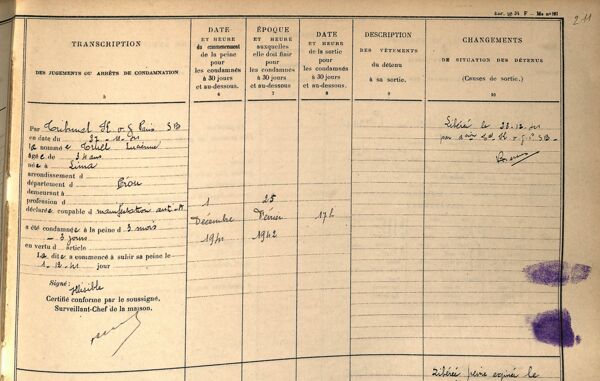 Mle n° 187
211
TRANSCRIPTION
DES JUGEMENTS OU ARRÊTS DE CONDAMNATION
5
DATE
ET HEURE
du commencement
de la peine
pour
les condamnés
à 30 jours
et au-dessous.
6
ÉPOQUE
ET HEURE
auxquelles
elle doit finir
pour
les condamnés
à 30 jours
et au-dessous.
7
DATE
ET HEURE
de la sortie
pour
les condamnés
à 30 jours
et au-dessous.
8
DESCRIPTION
DES VÊTEMENTS
du détenu
à sa sortie.
9
CHANGEMENTS
DE SITUATION DES DÉTENUS
(Causes de sortie.)
10
Par Tribunal K v g Paris SB
en date du 27-11-41
la nommée Lucienne
âgée de ans
née à Lima
arrondissement d
département d Pérou
demeurant à
profession d
déclarée coupable d manifestation ant. A
a été condamnée à la peine d 3 mois
- 3 jours
en vertu d article
La dite a commencé à subir sa peine le
1-12-41 jour
1
Décembre
1941
25
Février
1942
17h
Libéré le 23-12-41
par
Signé : illisible
Certifié conforme par le soussigné,
Surveillant-Chef de la maison.
Libérée peine expirée le